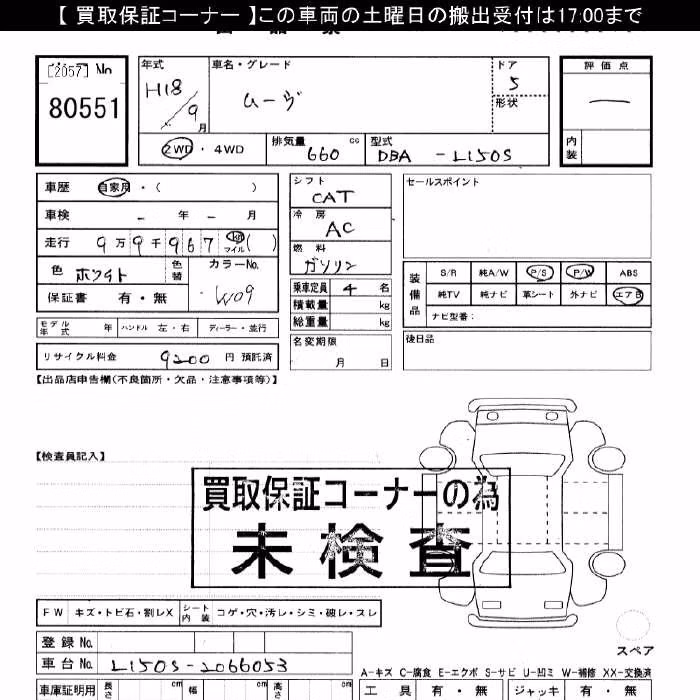 【 買取保証コーナー 】この車両の土曜日の搬出受付は17:00まで
[2057] No
80551
年式 H18/9月
車名・グレード ムーヴ
ドア 5
形状
評価点 —
内装
2WD ・ 4WD
排気量 660 cc
型式 DBA - L150S
車歴 自家用・( )
車検 - 年 - 月
走行 9万9千967 km マイル( )
色 ホワイト 色替
カラーNo. W09
保証書 有・無
シフト CAT
冷房 AC
燃料 ガソリン
乗車定員 4 名
積載量 kg
総重量 kg
セールスポイント
装備品 S/R 純A/W P/S P/W ABS
純TV 純ナビ 革シート 外ナビ エアB
ナビ型番：
モデル年式 年 ハンドル 左・右 ディーラー・並行
リサイクル料金 9200 円 預託済
名変期限 月 日
後日品
【出品店申告欄(不良箇所・欠品・注意事項等)】
【検査員記入】
買取保証コーナーの為
未検査
FW キズ・トビ石・割レX シート内装 コゲ・穴・汚レ・シミ・破レ・スレ
スペア
登録 No.
車台 No. L150S-2066053
A-キズ C-腐食 E-エクボ S-サビ U-凹ミ W-補修 XX-交換済
車庫証明用 長さ cm 幅 cm 高さ
工具 有・無 ジャッキ 有・無